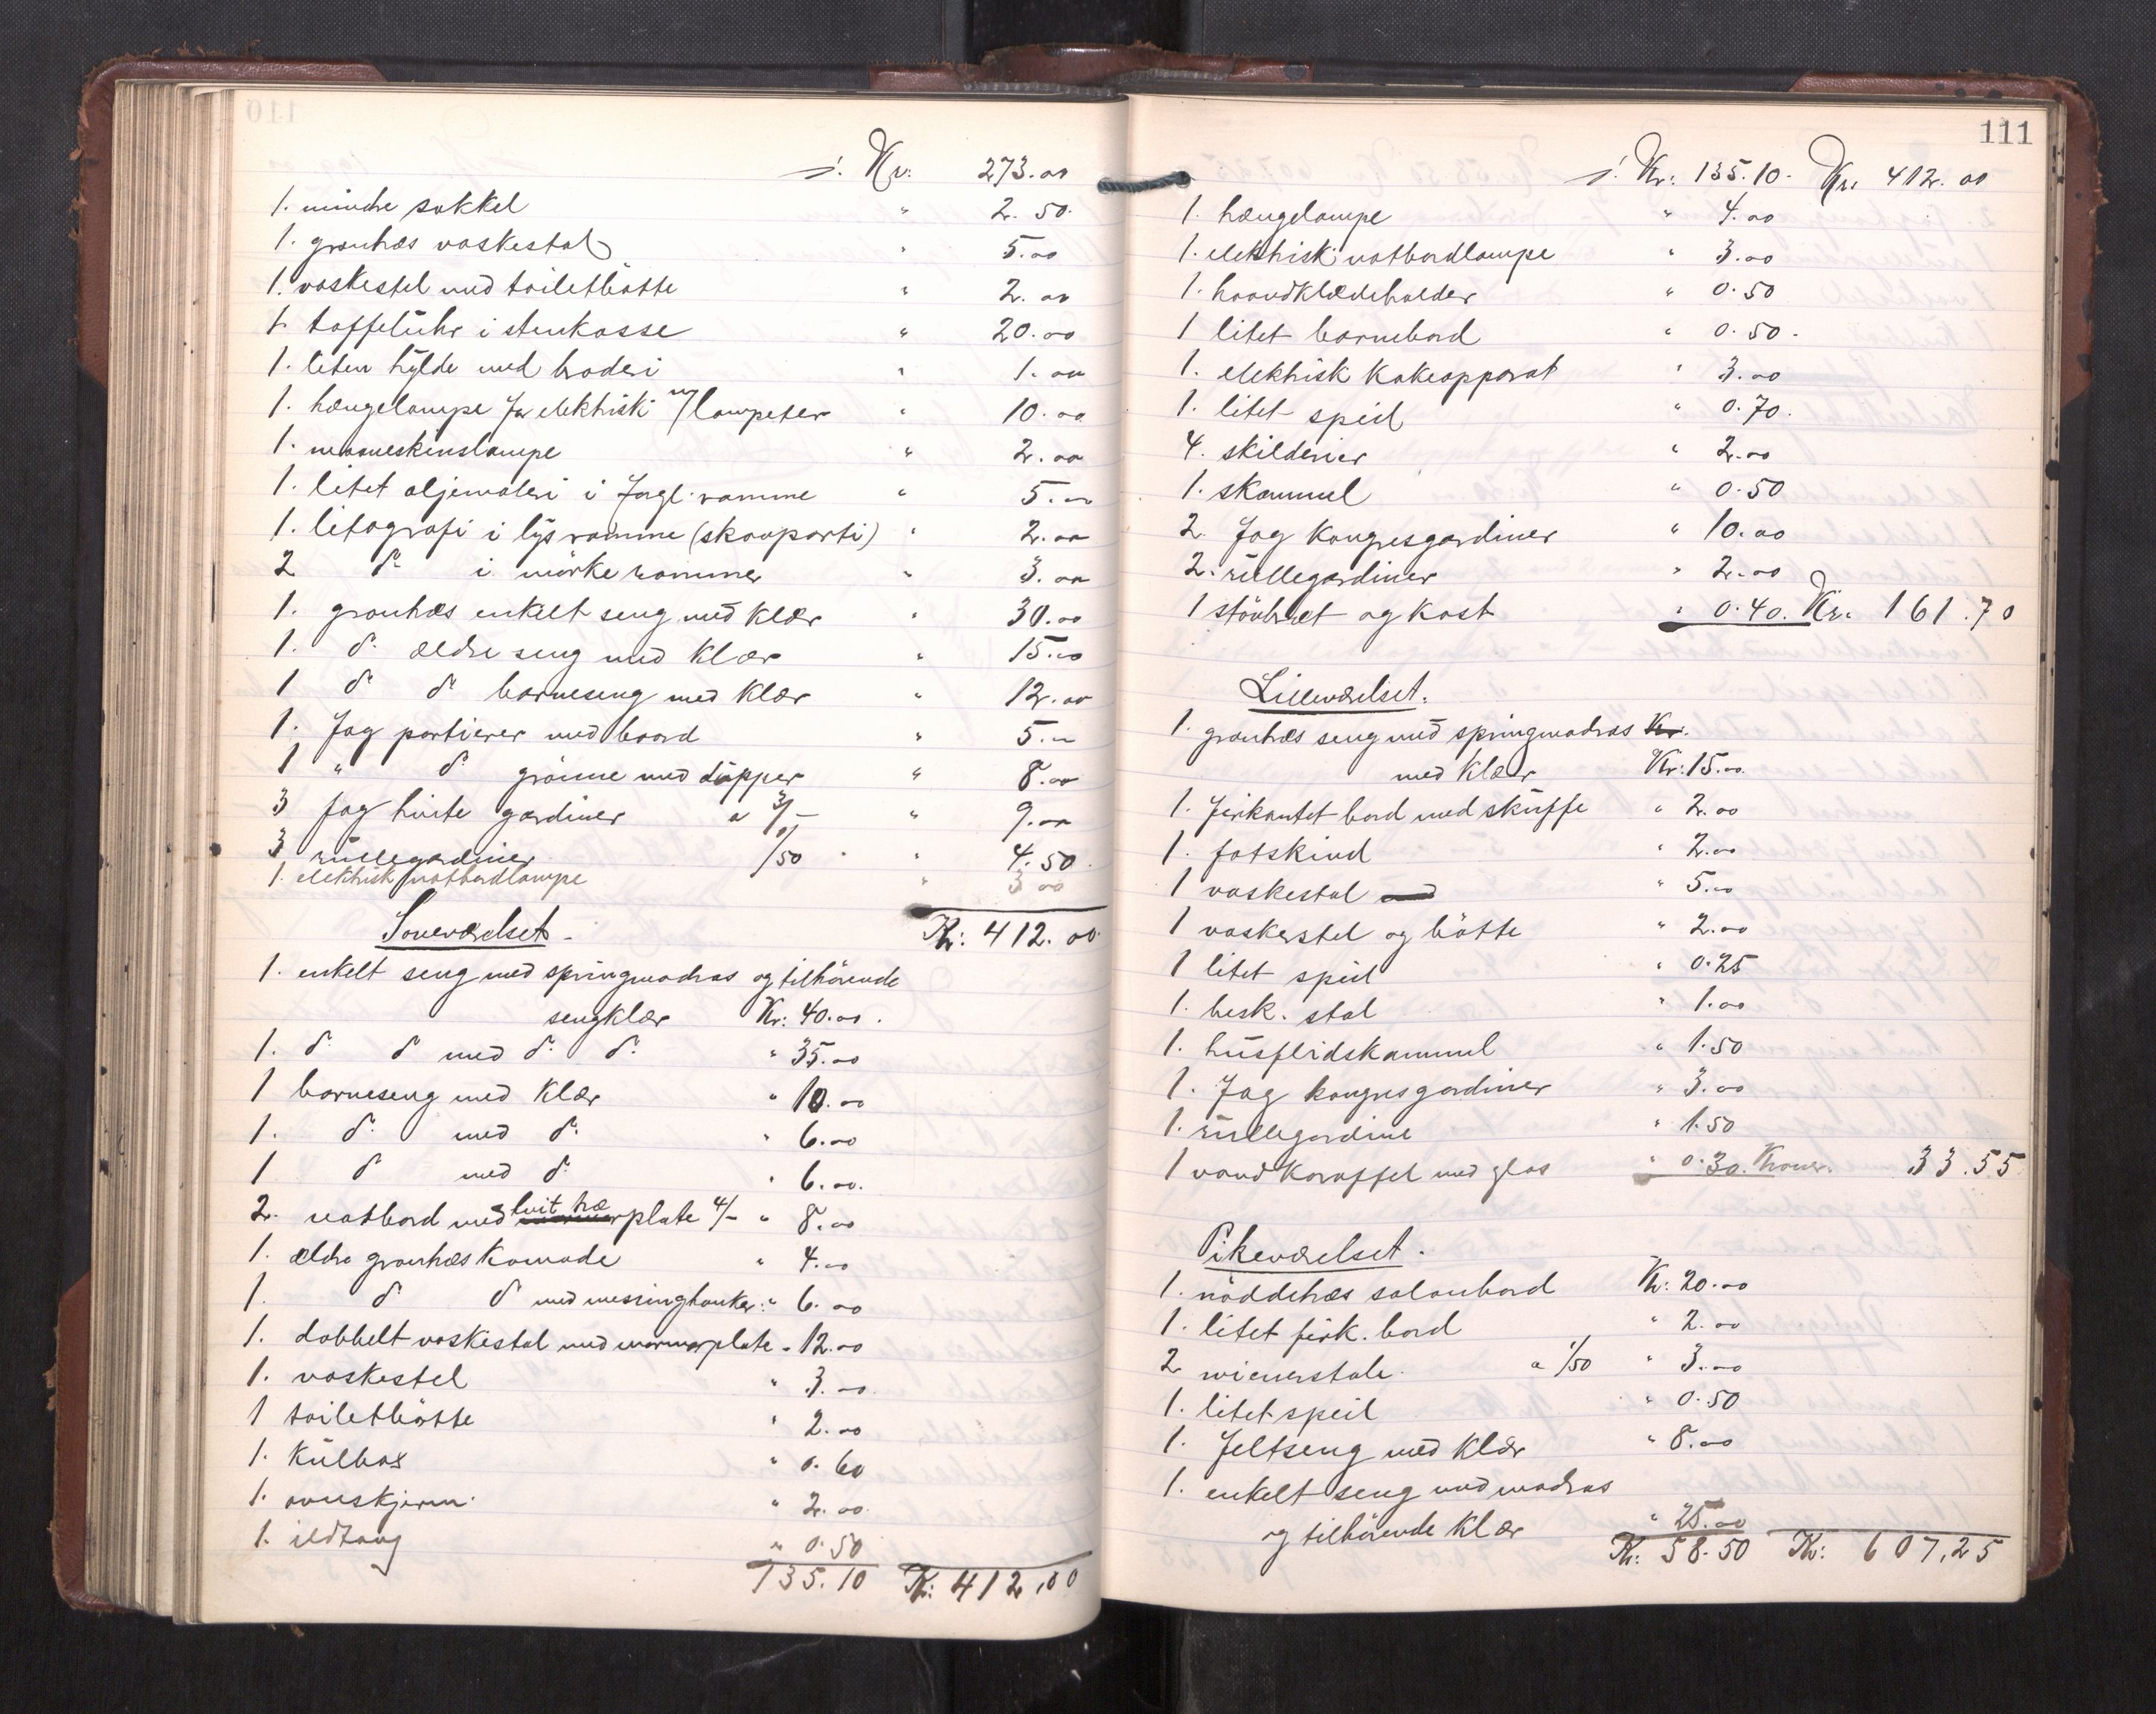 /. Kr: 273.00
1. mindre sokkel " 2.50.
1. grantræs vaskestol " 5.00
1. vaskestel med toiletbøtte " 2.00
1. taffeluhr i stenkasse " 20.00
1. liten hylde med broderi " 1.00
1. hængelampe for elektrisk m/ lampeter " 10.00
1. messkinslampe " 2.00
1. litet oljemaleri i forgl. ramme " 5.00
1. litografi i lys ramme (skovparti) " 2.00
2 do i mörke rammer " 3.00
1. grantræs enkelt seng med klær " 30.00
1. do ældre seng med klær " 15.00
1 do do barneseng med klær " 12.00
1. fag portierer med baard " 5.00
1 " do grønne med dupper " 8.00
3 fag hvite gardiner a 3/- " 9.00
3 rullegardiner 1/50 " 4.50
1. elektrisk natbordlampe " 3 00
Kr: 412.00
Soveværelset.
1. enkelt seng med springmadras og tilhörende
sengklær Kr: 40.00.
1. do do med do do " 35.00
1 barneseng med klær " 10.00
1. do med do " 6.00
1 do med do " 6.00.
2. natbord med marmor hvit træ plate 4/- " 8.00
1. ældre grantræs komode " 4.00
1. do do med messinghanker: " 6.00
1. dobbelt vaskestol med marmorplate - 12.00
1. vaskestel " 3.00
1 toiletbøtte " 2.00
1. kulbox " 0.60
1. ovnskjerm. " 2.00.
1. ildtang " 0.50
135.10 Kr: 412,00
111
/. Kr: 135.10. Kr. 412.00
1. hængelampe " 4.00
1. elektrisk natbordlampe " 3.00
1. haandklædeholder " 0.50
1 litet barnebord " 0.50.
1. elektrisk kokeapparat " 3.00
1. litet speil " 0.70.
4. skilderier " 2.00
1. skammel " 0.50
2. fag kongresgardiner " 10.00
2. rullegardiner " 2.00
1 stövbræt og kost " 0.40. Kr. 161.70
Lilleværelset.
1. grantræs seng med springmadras Kr.
med klær Kr: 15.00.
1. firkantet bord med skuffe " 2.00
1. fotskind " 2.00
1 vaskestol med " 5.00
1 vaskestel og bøtte " 2.00
1 litet speil " 0.25
1. besk. stol " 1.00
1. husflidskammel " 1.50
1. fag kongresgardiner " 3.00
1. rullegardine " 1.50
1 vandkaraffel med glas " 0.30. Kroner. 33.55
Pikeværelset.
1. nöddetræs salonbord Kr: 20.00
1. litet firk. bord " 2.00
2 wienerstole. a 1/50 " 3.00
1. litet speil " 0.50
1. feltseng med klær " 8.00
1. enkelt seng med madras
og tilhörende klær " 25.00
Kr: 58.50 Kr: 607,25